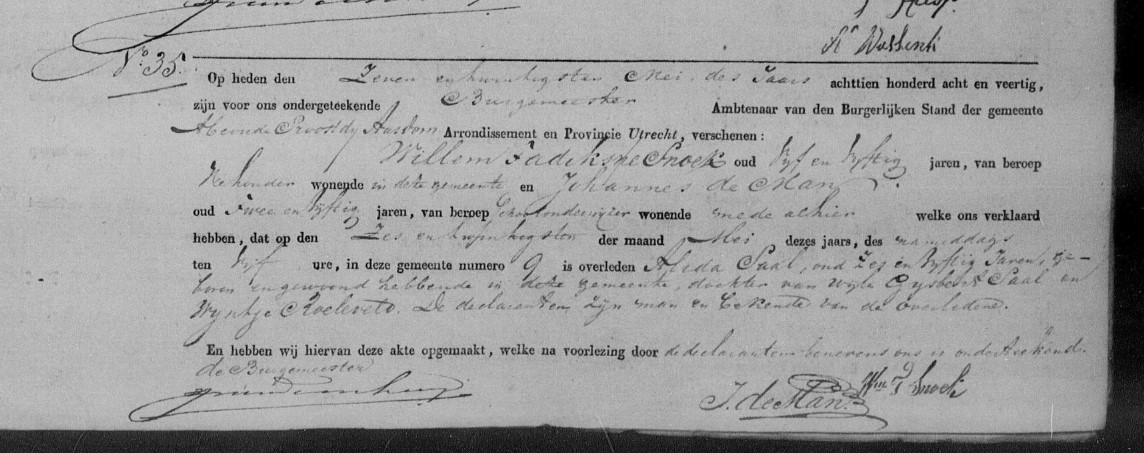 Kr Wossink
No. 35.
Op heden den Zeven en twintigsten Mei des Jaars achttien honderd acht en veertig,
zijn voor ons ondergeteekende Burgemeester Ambtenaar van den Burgerlijken Stand der gemeente
Abcoude Proostdy Aasdom Arrondissement en Provincie Utrecht, verschenen:
Willem Snoek oud Vyf en Vyftig jaren, van beroep
wonende in deze gemeente en Johannes de Man
oud Twee en Vyftig jaren, van beroep Schoolonderwyzer wonende mede alhier welke ons verklaard
hebben, dat op den Zes en twintigsten der maand Mei dezes jaars, des namiddags
ten Vyf ure, in deze gemeente numero 9 is overleden Alida Saal, oud Zes en Vyftig Jaren, ge-
boren en gewoond hebbende in deze gemeente, dochter van wyle Gysbert Saal en
Wyntje Roeleveld. De declaranten zyn man en bekende van de overledene.
En hebben wij hiervan deze akte opgemaakt, welke na voorlezing door de declaranten benevens ons is onderteekend.
de Burgemeester
J. de Man. Wm F Snoek